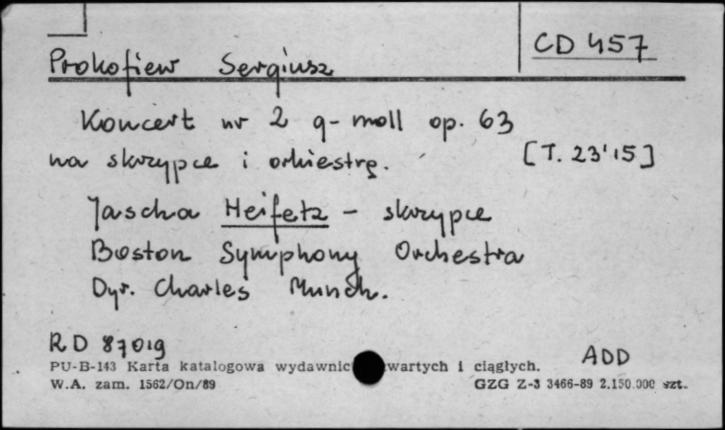 CD 457
Prokofiew Sergiusz
Koncert nr 2 g-moll op. 63
na skrzypce i orkiestrę. [T. 23'15]
Jascha Heifetz - skrzypce
Boston Symphony Orchestra
Dyr. Charles Munch.
RD 87019
ADD
PU-B-143 Karta katalogowa wydawnic wartych i ciągłych.
W.A. zam. 1562/On/89 GZG Z-3 3466-89 2.150.000 szt.